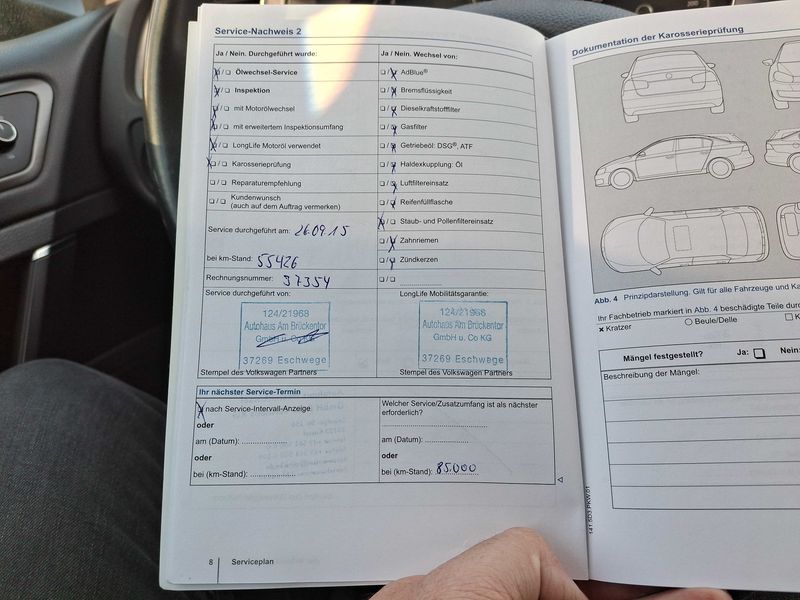 Service-Nachweis 2
Ja / Nein. Durchgeführt wurde:
☒/☐ Ölwechsel-Service
☒/☐ Inspektion
☒/☐ mit Motorölwechsel
☒/☐ mit erweitertem Inspektionsumfang
☒/☐ LongLife Motoröl verwendet
☒/☐ Karosserieprüfung
☐/☐ Reparaturempfehlung
☐/☐ Kundenwunsch
(auch auf dem Auftrag vermerken)
Service durchgeführt am: 26.09.15
bei km-Stand: 55426
Rechnungsnummer: 37354
Service durchgeführt von:
124/21968
Autohaus Am Brückentor
GmbH u. Co KG
37269 Eschwege
Stempel des Volkswagen Partners
Ja / Nein. Wechsel von:
☐/☒ AdBlue®
☐/☒ Bremsflüssigkeit
☐/☒ Dieselkraftstofffilter
☐/☒ Gasfilter
☐/☒ Getriebeöl: DSG®, ATF
☐/☒ Haldexkupplung: Öl
☐/☒ Luftfiltereinsatz
☐/☒ Reifenfüllflasche
☒/☐ Staub- und Pollenfiltereinsatz
☐/☒ Zahnriemen
☐/☒ Zündkerzen
☐/☐ ....................
LongLife Mobilitätsgarantie:
124/21968
Autohaus Am Brückentor
GmbH u. Co KG
37269 Eschwege
Stempel des Volkswagen Partners
Ihr nächster Service-Termin
☒ nach Service-Intervall-Anzeige
oder
am (Datum): ................
oder
bei (km-Stand): ................
Welcher Service/Zusatzumfang ist als nächster
erforderlich?
am (Datum): ................
oder
bei (km-Stand): 85.000
8 Serviceplan
Dokumentation der Karosserieprüfung
Abb. 4 Prinzipdarstellung. Gilt für alle Fahrzeuge und
Ihr Fachbetrieb markiert in Abb. 4 beschädigte Teile
x Kratzer ○ Beule/Delle
Mängel festgestellt? Ja: ☐ Nein:
Beschreibung der Mängel:
141.5D3.PKW.01